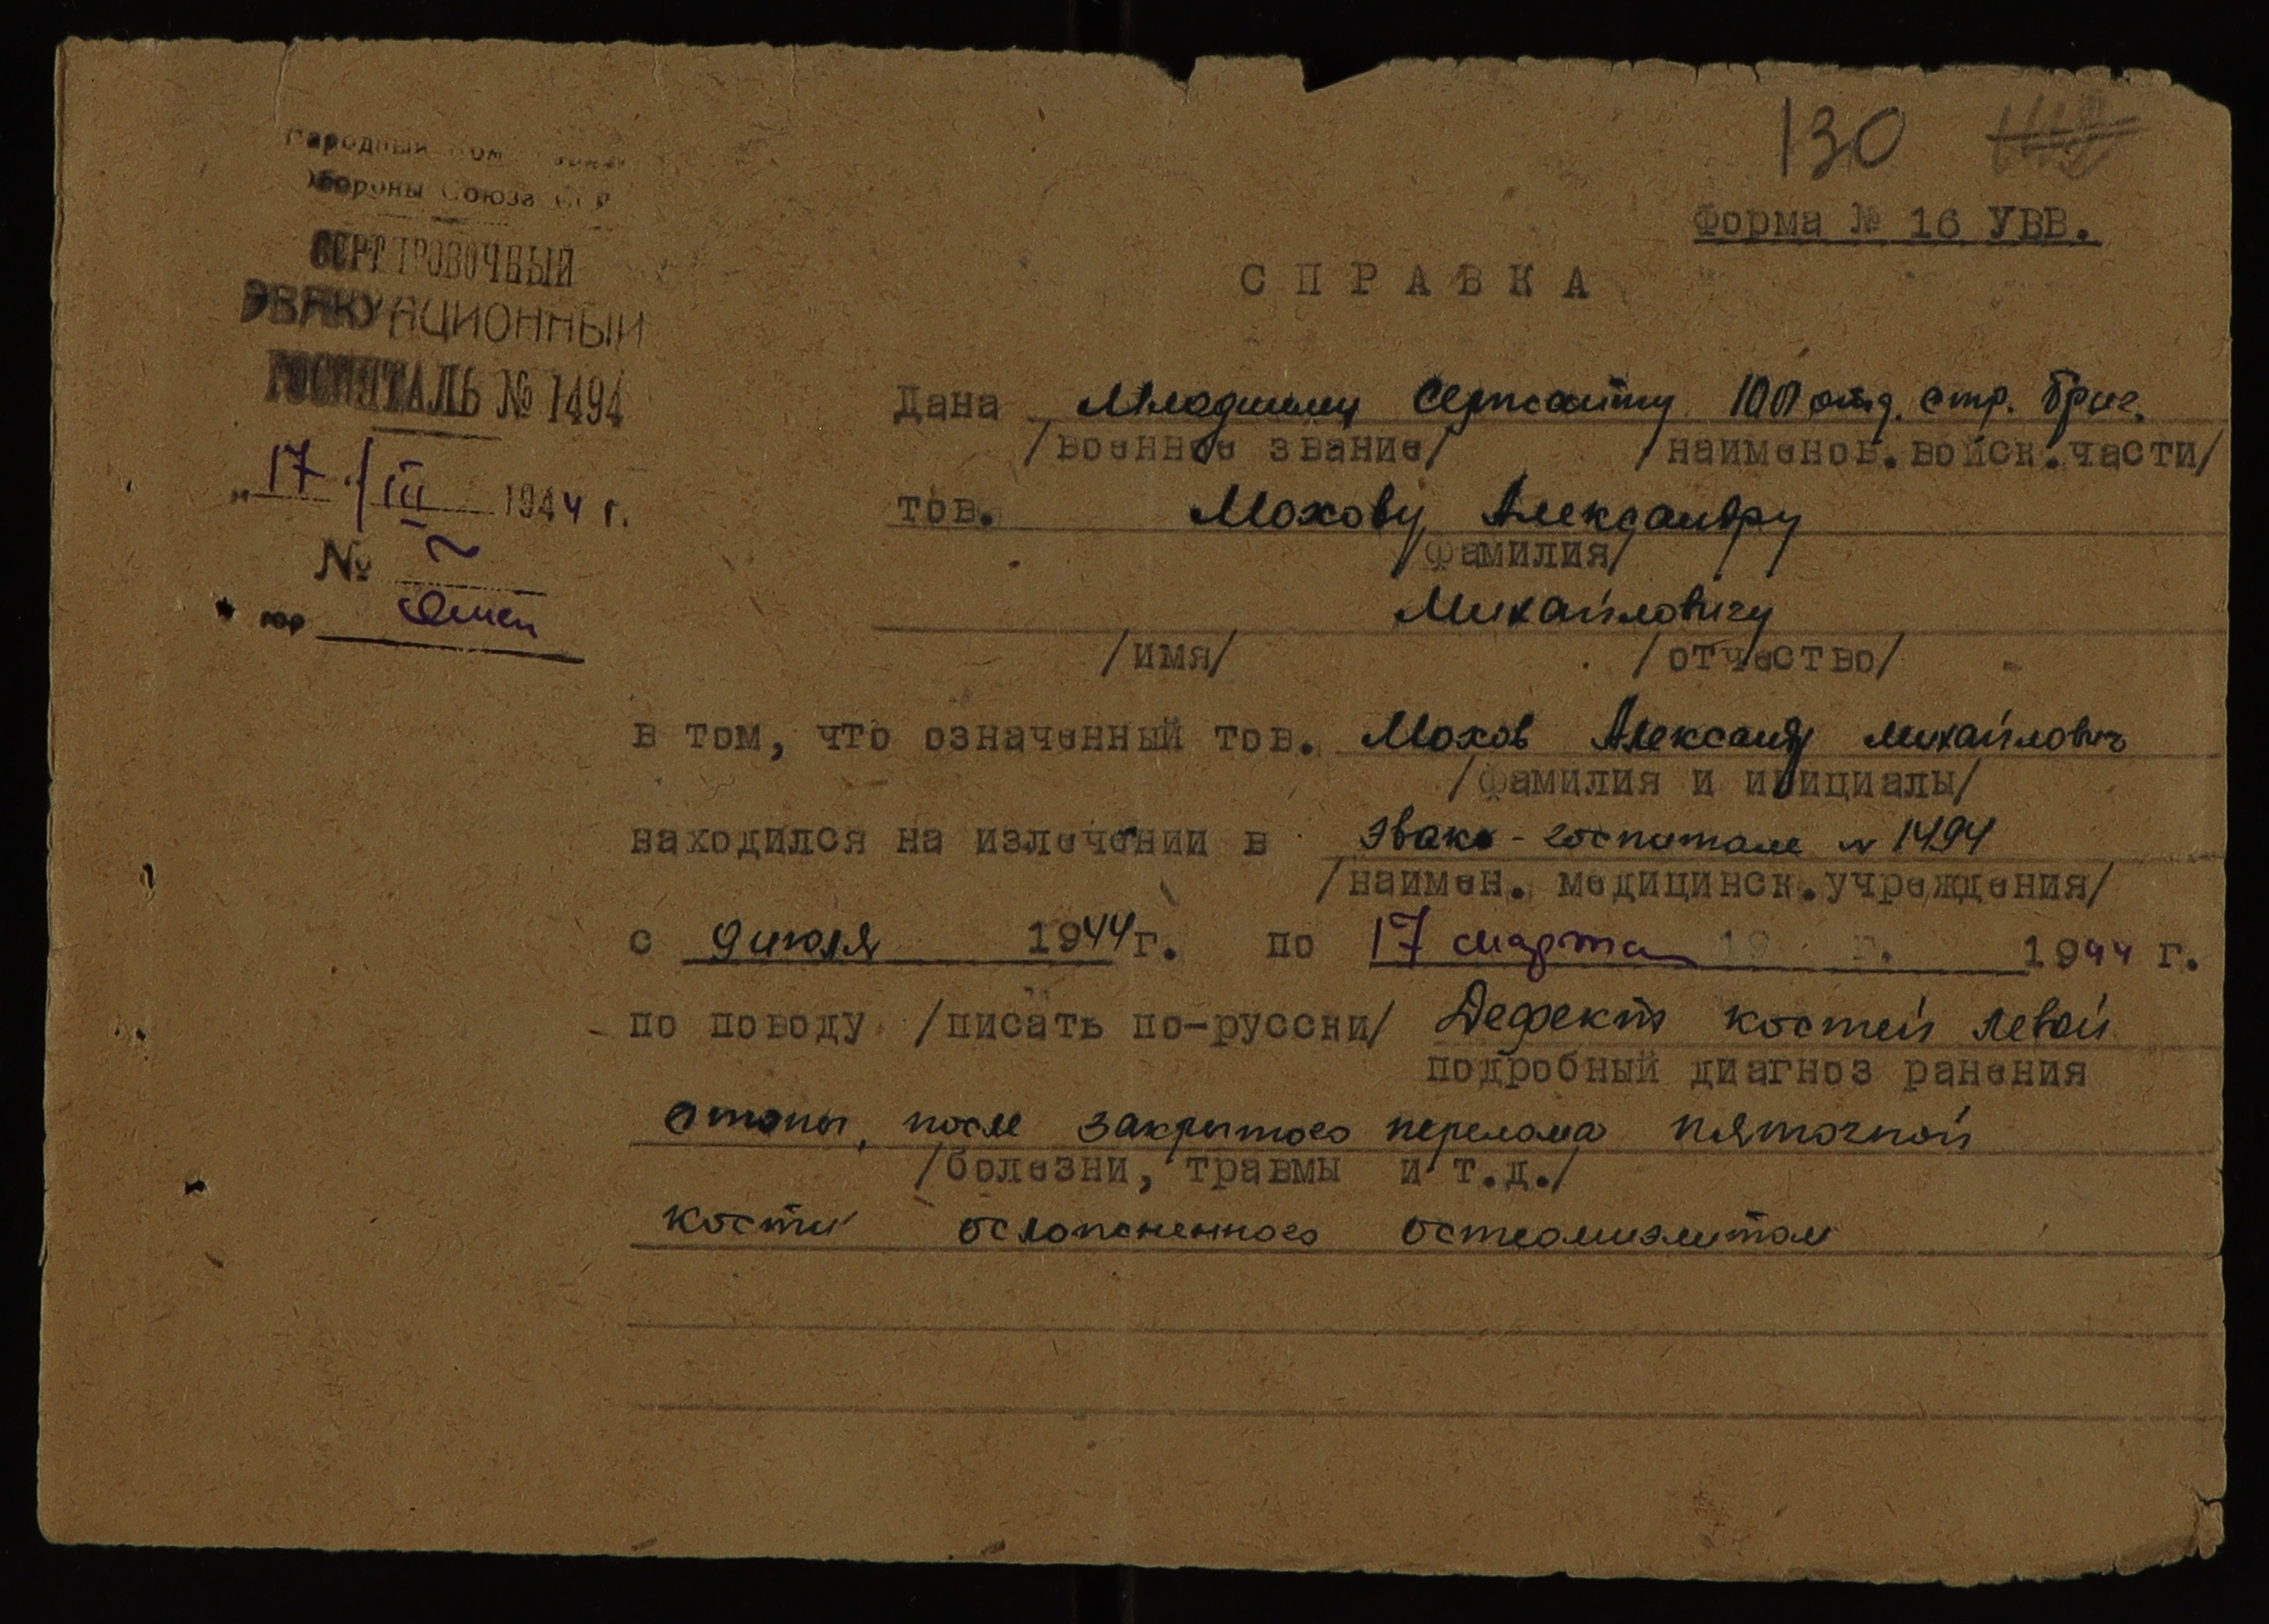 130
Форма № 16 УВВ.
СПРАВКА
Народный
Обороны Союза ССР
СОРТИРОВОЧНЫЙ
ЭВАКУАЦИОННЫЙ
ГОСПИТАЛЬ № 1494
"17" / III 1944 г.
№
гор Омск
Дана Младшему Сержанту 100 отд. стр. бриг.
/военное звание/ /наименов. войск. части/
тов. Мохову Александру
/фамилия/
Михайловичу
/имя/ /отчество/
в том, что означенный тов. Мохов Александр Михайлович
/фамилия и инициалы/
находился на излечении в эвако-госпитале № 1494
/наимен. медицинск. учреждения/
с 9 июля 1944 г. по 17 марта 19 г. 1944 г.
по поводу /писать по-русски/ Дефект костей левой
подробный диагноз ранения
стопы, после закрытого перелома пяточной
/болезни, травмы и т.д./
кости осложненного остеомиэлитом